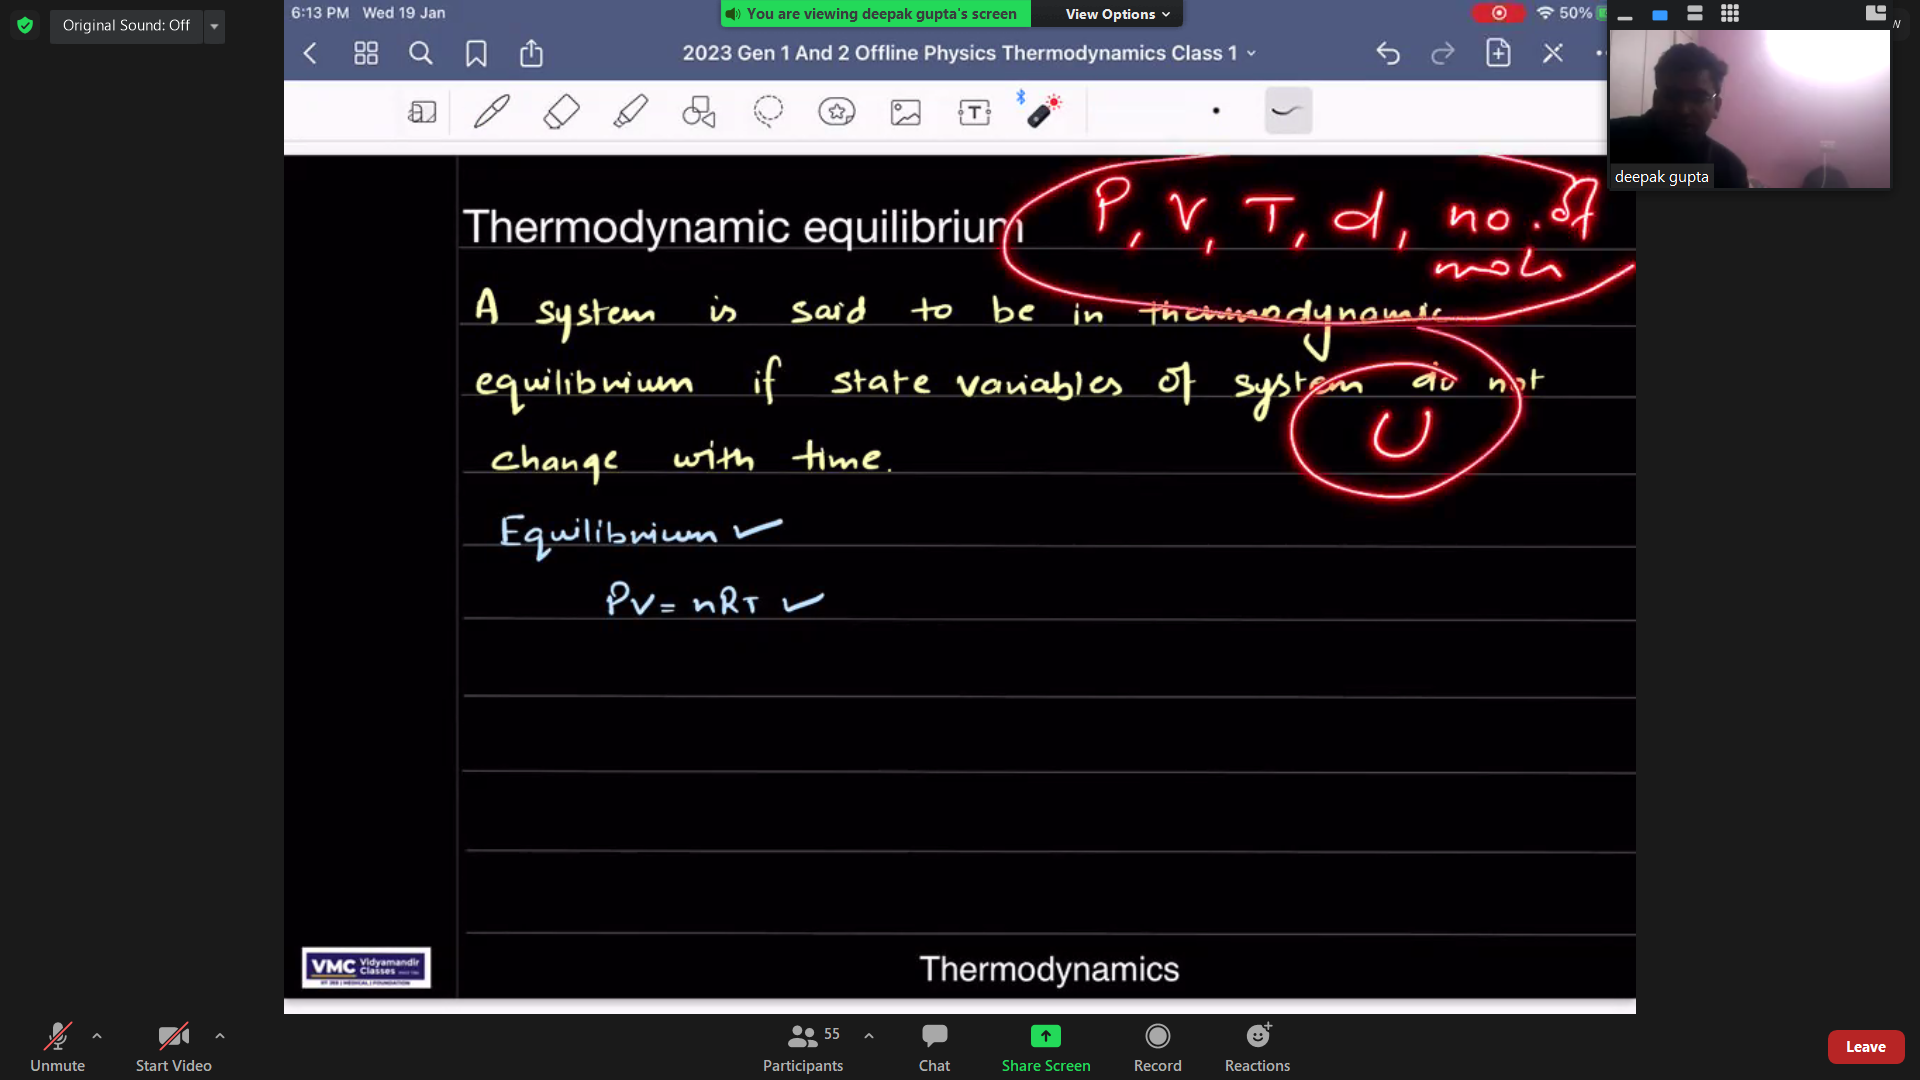 Original Sound: Off
6:13 PM Wed 19 Jan
You are viewing deepak gupta's screen
View Options
50%
2023 Gen 1 And 2 Offline Physics Thermodynamics Class 1
deepak gupta
Thermodynamic equilibrium
P, V, T, d, no. of
A system is said to be in thermodynamic
equilibrium if state variables of system do not
U
change with time.
Equilibrium ✓
PV = nRT ✓
VMC Vidyamandir
Classes
Thermodynamics
Unmute
Start Video
Participants
55
Chat
Share Screen
Record
Reactions
Leave